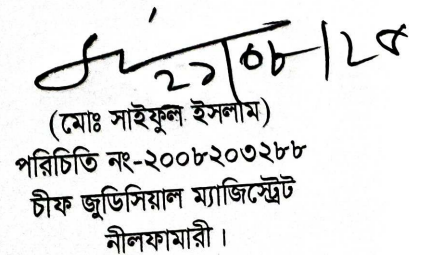 (মোঃ সাইফুল ইসলাম)
পরিচিতি নং-২০০৮২০৩২৮৮
চীফ জুডিসিয়াল ম্যাজিস্ট্রেট
নীলফামারী।